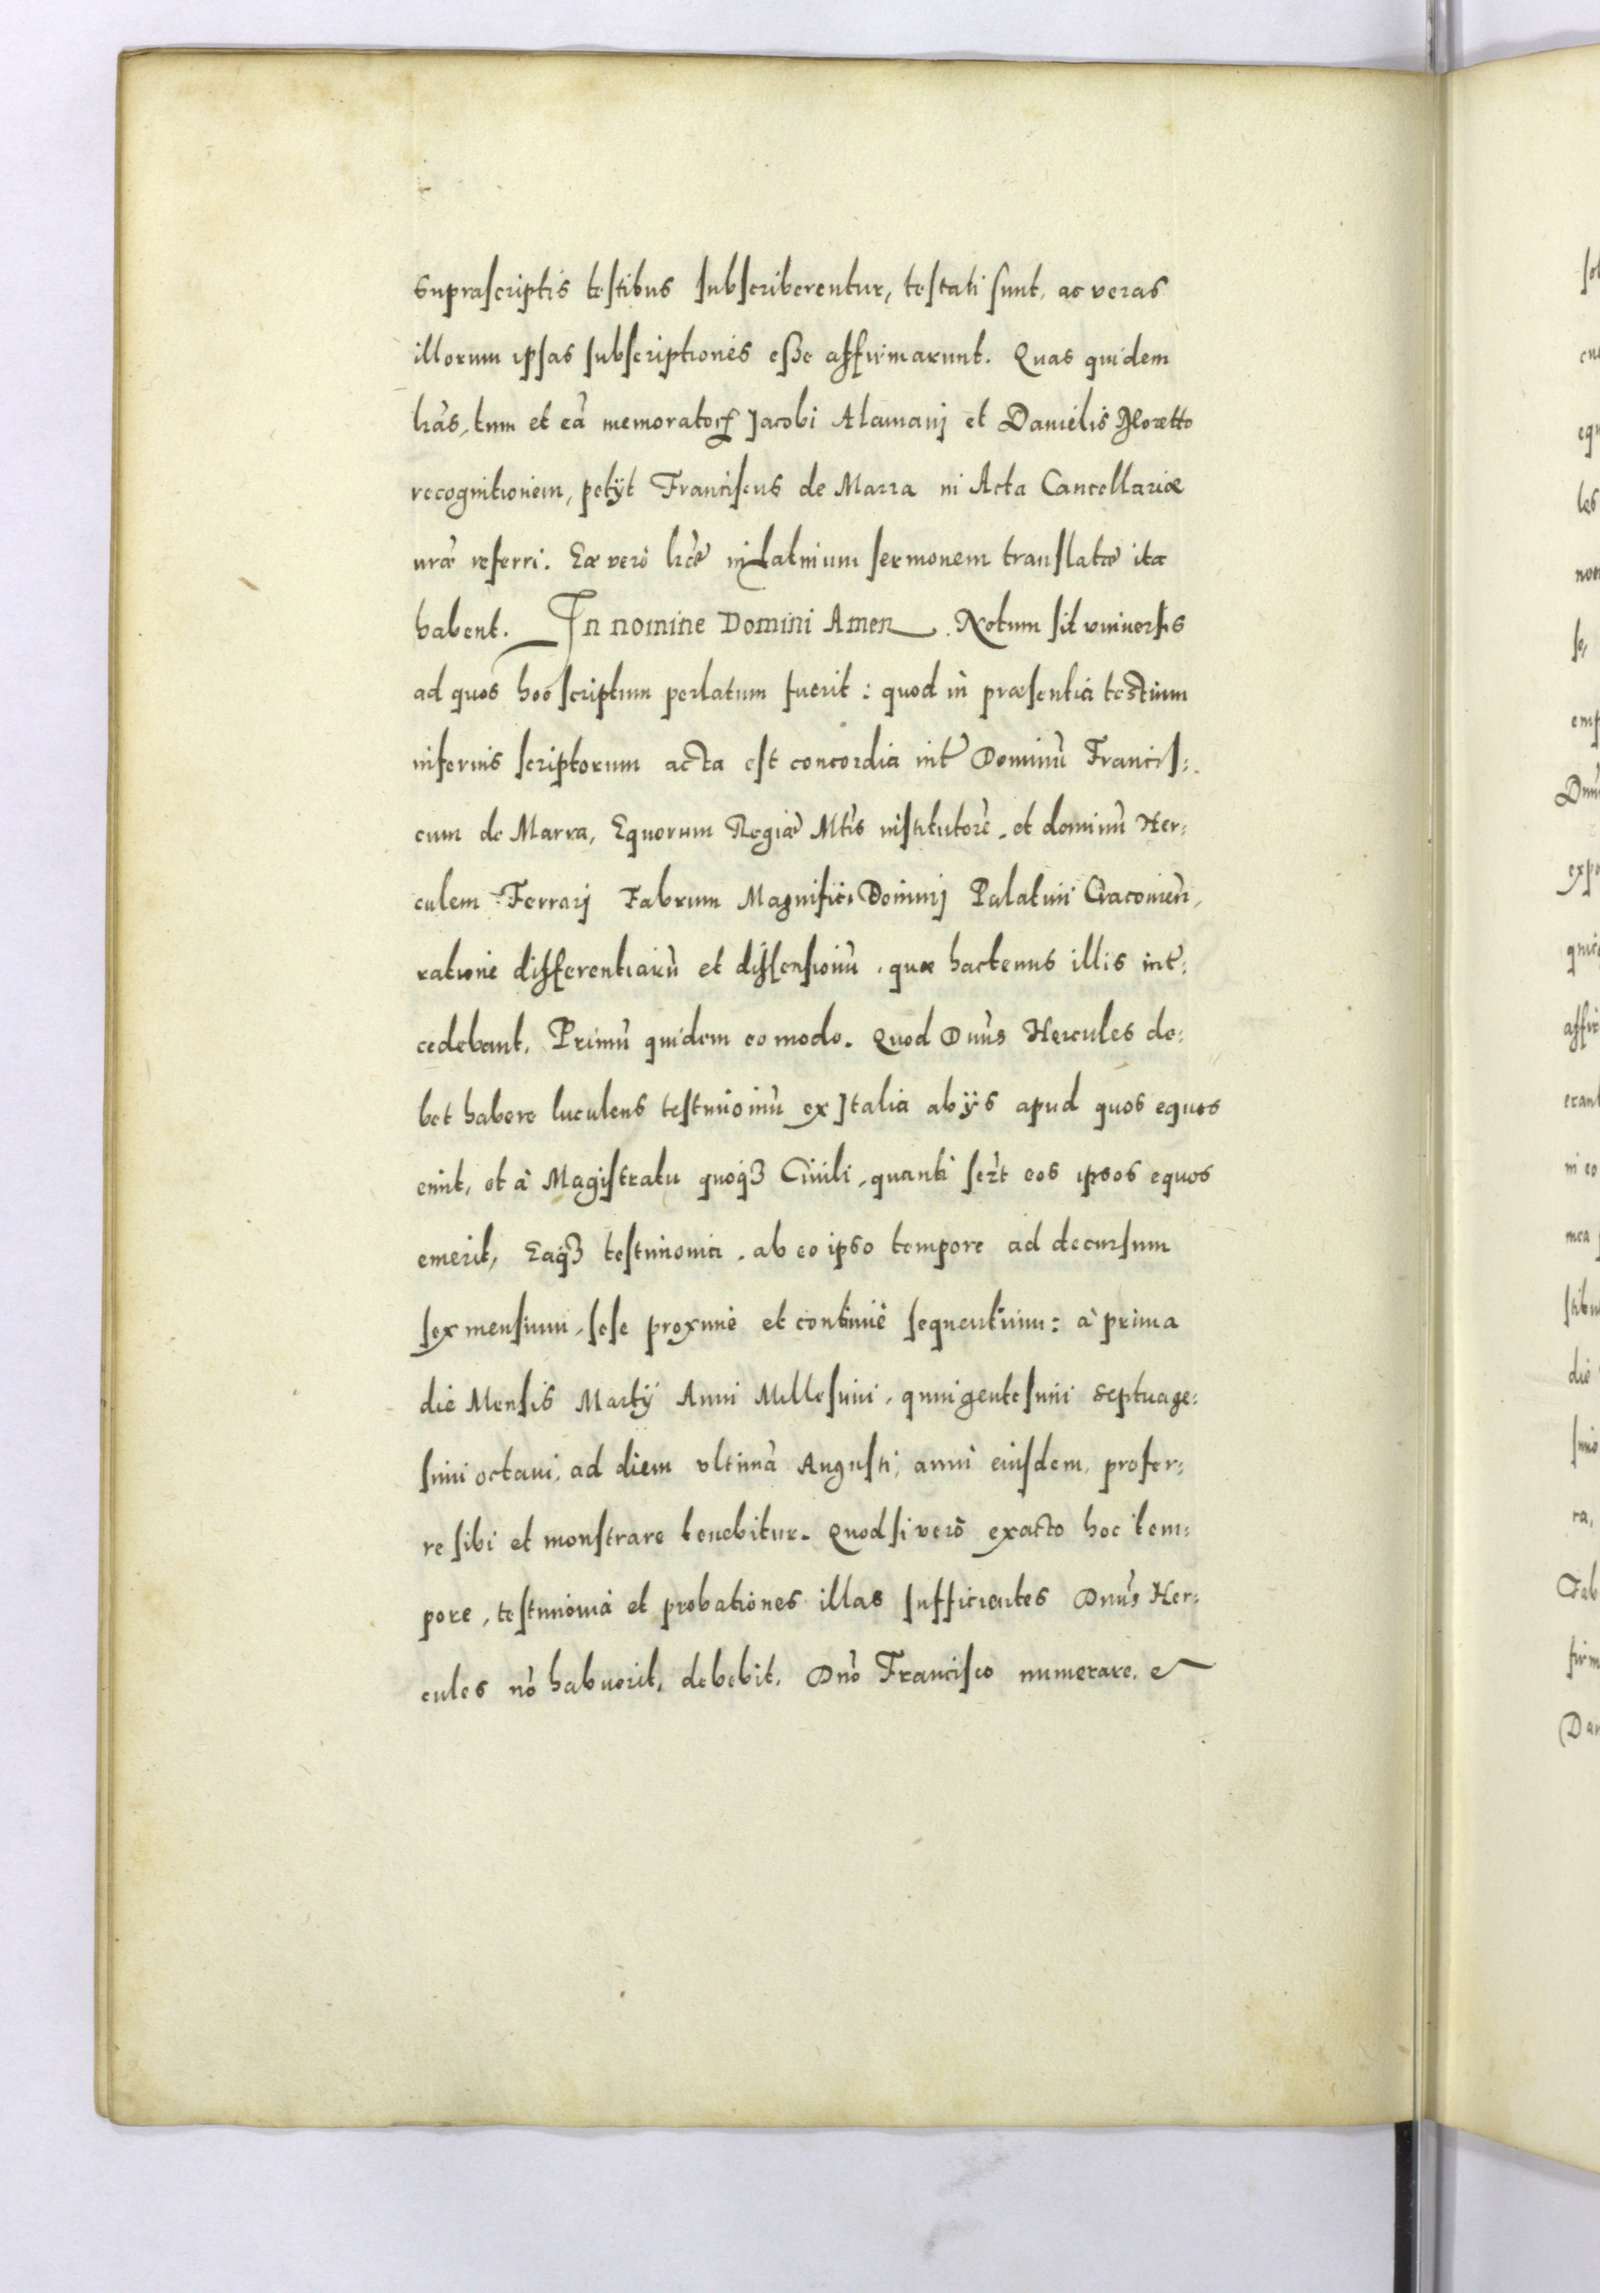 suprascriptis testibus subscriberentur, testati sunt, ac veras
illorum ipsas subscriptiones eße affirmarunt. Quas quidem
lr̃as, tum et eã memorator̃ Jacobi Alamanj et Danielis Moretto
recognitionem, petÿt Franciscus de Marra in Acta Cancellariæ
nr̃æ referri. Eæ verò lr̃æ in Latinium sermonem translatæ ita
habent. In nomine Domini Amen. Notum sit vniuersis
ad quos hoc scriptum perlatum fuerit: quod in præsentia testium
inferius scriptorum acta est concordia int̃ Dominũ Francis:
cum de Marra, Equorum Regiæ Mt̃is institutorẽ, et dominũ Her:
culem Ferrarj Fabrum Magnifici Dominj Palatini Cracouien̄,
ratione differentiarũ et dissensionũ, quæ hactenus illis int̃:
cedebant. Primũ quidem eo modo. Quod Dnũs Hercules de:
bet habere luculens testimoniũ ex Italia ab ÿs apud quos equos
emit, et à Magistratu quoqȝ Ciuili, quanti ser̃t eos ipsos equos
emerit, Eaqȝ testimonia, ab eo ipso tempore ad decursum
sex mensium, sese proximè et continuè sequentium: à prima
die Mensis Martÿ Anni Millesimi, quingentesimi septuage:
simi octaui, ad diem vltimã Augusti, anni eiusdem, profer:
re sibi et monstrare tenebitur. Quod si verò exacto hoc tem:
pore, testimonia et probationes illas sufficientes Dnũs Her:
cules nõ habuerit, debebit, Dnõ Francisco numerare, e